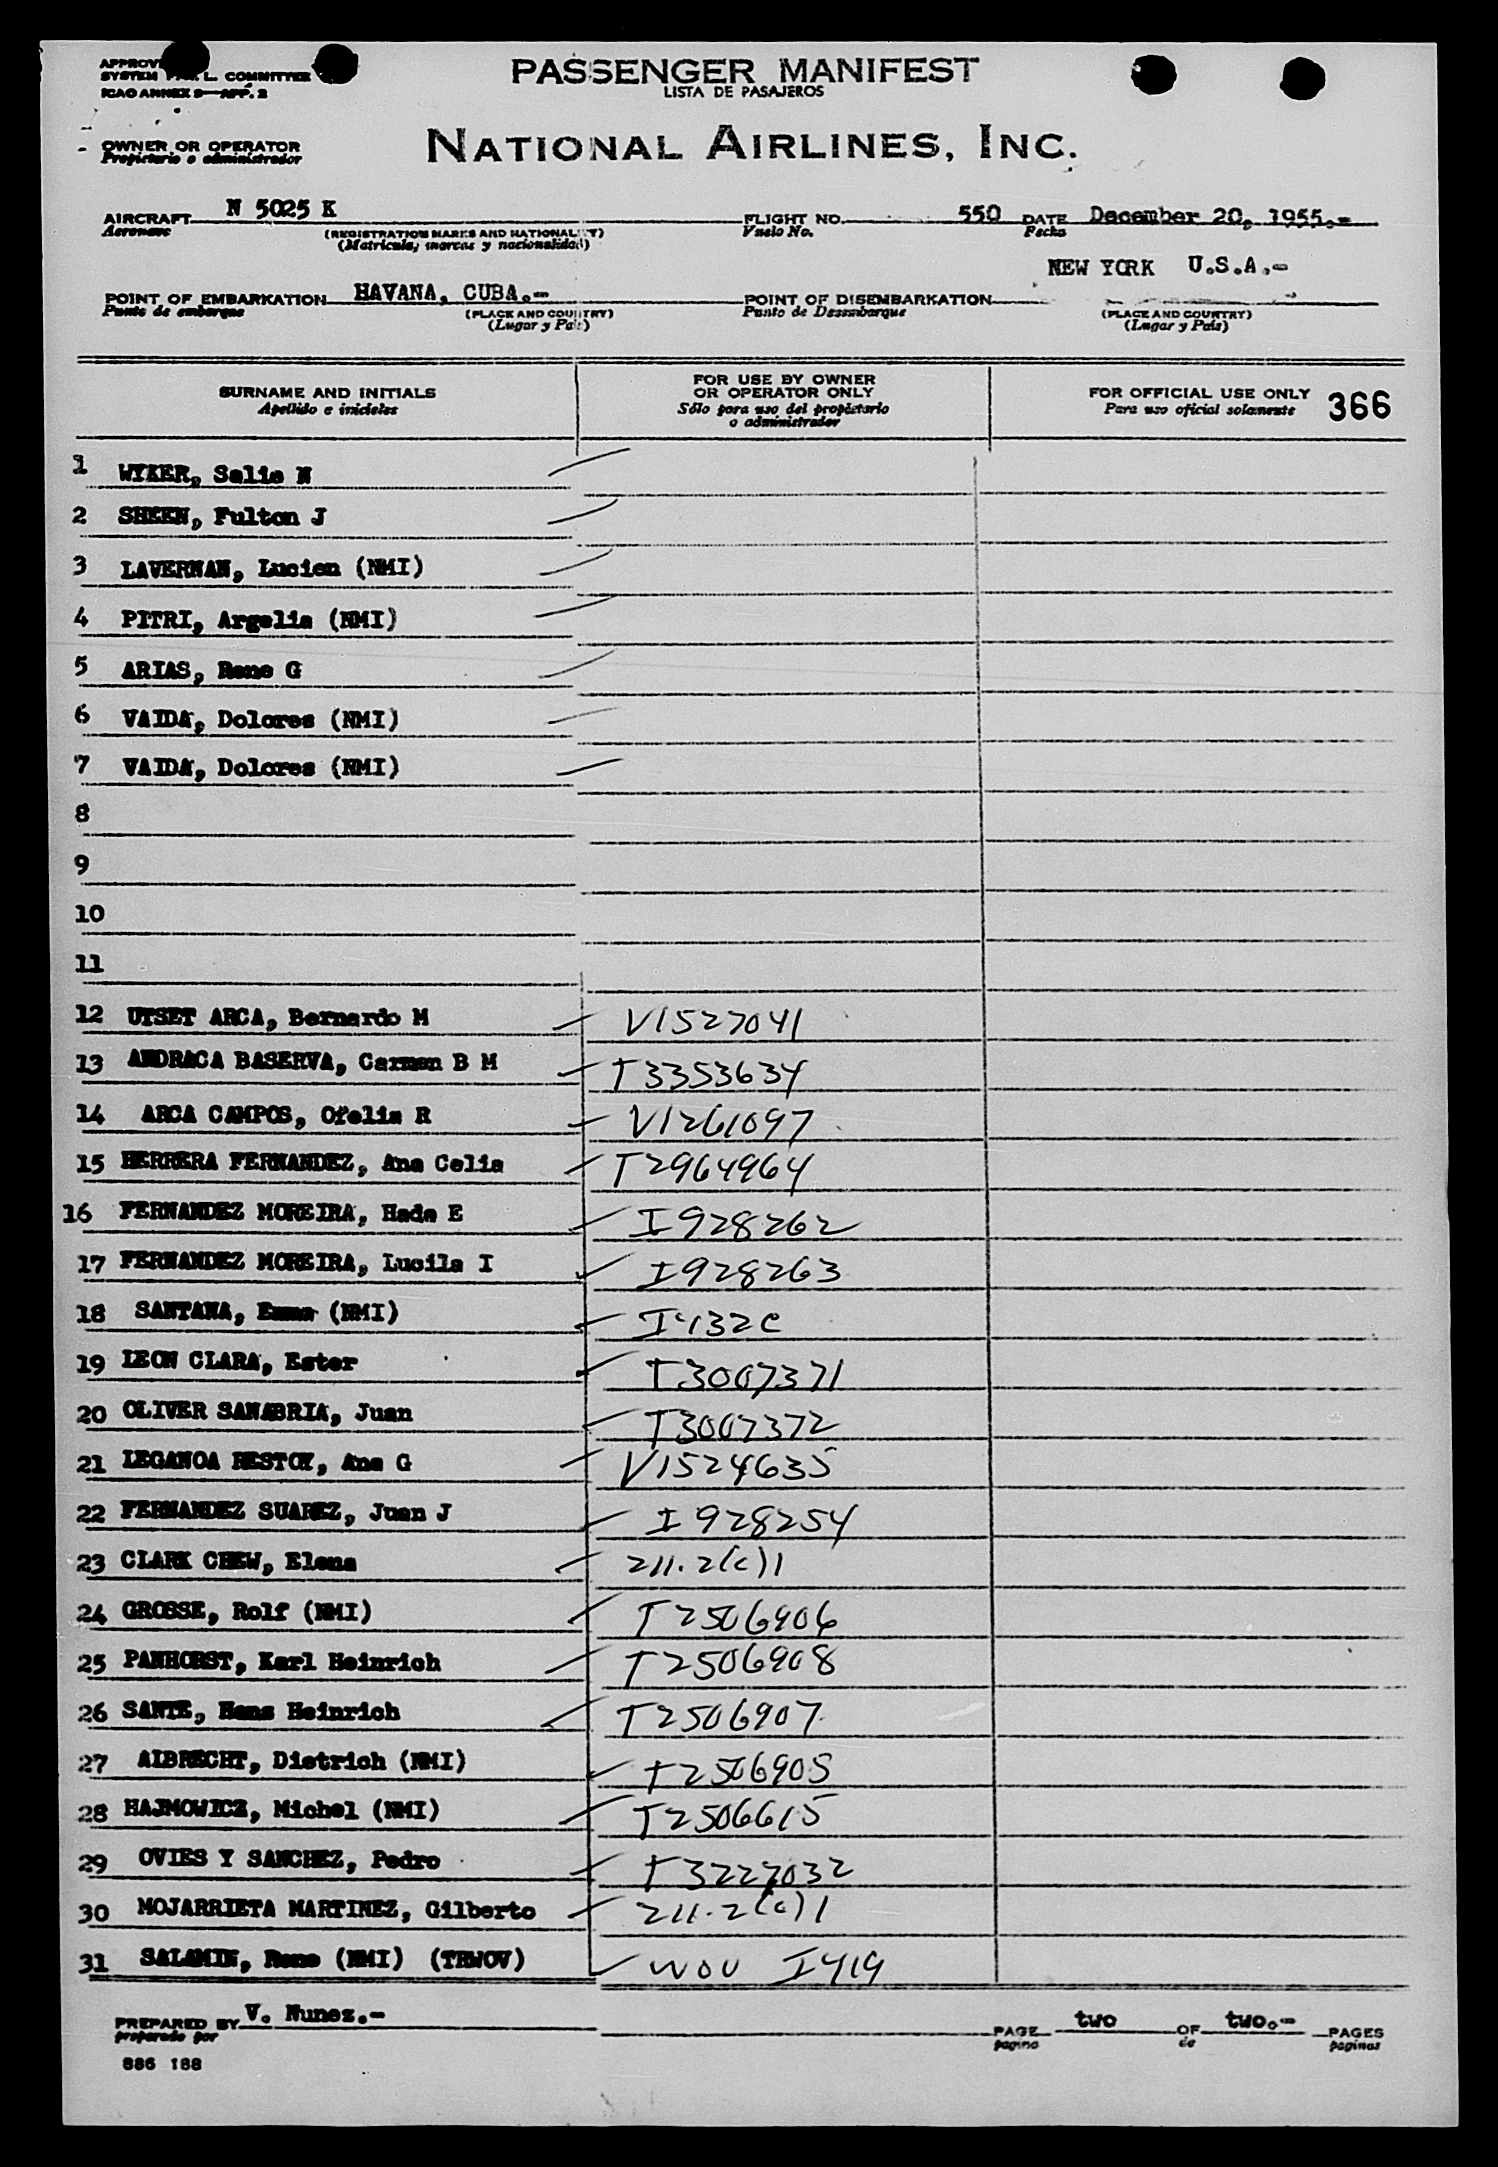 APPROVE
SYSTEM L. COMMITTEE
ICAO ANNEX 9—APP. 2
PASSENGER MANIFEST
LISTA DE PASAJEROS
OWNER OR OPERATOR
Propietario o administrador
NATIONAL AIRLINES, INC.
AIRCRAFT N 5025 K FLIGHT NO. 550 DATE December 20, 1955.-
Aeronave (REGISTRATION MARKS AND NATIONALITY) Vuelo No. Fecha
(Matricula, marcas y nacionalidad)
NEW YORK U.S.A.-
POINT OF EMBARKATION HAVANA, CUBA.- POINT OF DISEMBARKATION
Punto de embarque (PLACE AND COUNTRY) Punto de Desembarque (PLACE AND COUNTRY)
(Lugar y País) (Lugar y País)
SURNAME AND INITIALS
Apellido e iniciales
FOR USE BY OWNER
OR OPERATOR ONLY
Sólo para uso del propietario
o administrador
FOR OFFICIAL USE ONLY 366
Para uso oficial solamente
1 WYKER, Salie N
2 SHEEN, Fulton J
3 LAVERNAN, Lucien (NMI)
4 PITRI, Argelia (NMI)
5 ARIAS, Rene G
6 VAIDA, Dolores (NMI)
7 VAIDA, Dolores (NMI)
8
9
10
11
12 UTSET ARCA, Bernardo M V1527041
13 ANDRACA BASERVA, Carmen B M T3353634
14 ARCA CAMPOS, Ofelia R V1261097
15 HERRERA FERNANDEZ, Ana Celia T2964964
16 FERNANDEZ MOREIRA, Hada E I928262
17 FERNANDEZ MOREIRA, Lucila I I928263
18 SANTANA, Emma (NMI)
19 LEON CLARA, Ester T3007371
20 OLIVER SANABRIA, Juan T3007372
21 LEGANOA RESTOY, Ana G V1524635
22 FERNANDEZ SUAREZ, Juan J I928254
23 CLARK CHEW, Elena 211.2(c)1
24 GROSSE, Rolf (NMI) T2506906
25 PANHORST, Karl Heinrich T2506908
26 SANTE, Hans Heinrich T2506907
27 ALBRECHT, Dietrich (NMI) T2506905
28 HAJMOWICZ, Michel (NMI) T2506615
29 OVIES Y SANCHEZ, Pedro T3227032
30 MOJARRIETA MARTINEZ, Gilberto 211.2(c)1
31 SALAMIN, Rene (NMI) (TRWOV) WOV I419
PREPARED BY V. Nunez.- PAGE two OF two.- PAGES
preparado por pagina de paginas
886 188